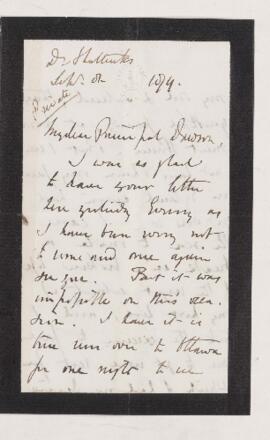 Dr Shattucks
Sep. 8 1879.
Private
My dear Principal Dawson,
I was as glad
to have your letter
here yesterday Evening as
I have been sorry not
to come and once again
see you. But it was
impossible on this occa-
sion. I have it is
true run over to Ottawa
for one night to see